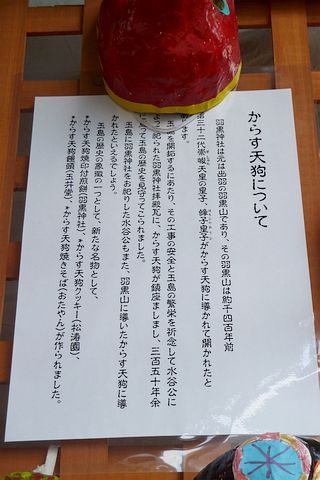 からす天狗について
羽黒神社は元は出羽の羽黒山であり、その羽黒山は約千四百年前
第三十二代崇峻天皇の皇子、蜂子皇子がからす天狗に導かれて開かれたと
ります。
玉島を開拓するにあたり、その工事の安全と玉島の繁栄を祈念して水谷公に
よって祀られた羽黒神社拝殿瓦に、からす天狗が鎮座ましまし、三百五十年余
にわたって玉島の歴史を見守ってこられました。
玉島に羽黒神社をお祀りした水谷公もまた、羽黒山に導いたからす天狗に導
かれたといえるでしょう。
玉島の歴史の象徴の一つとして、新たな名物として、
*からす天狗焼印付煎餅(羽黒神社)、*からす天狗クッキー(松涛園)、
*からす天狗饅頭(玉井堂)、*からす天狗焼きそば(おたやん)が作られました。
水